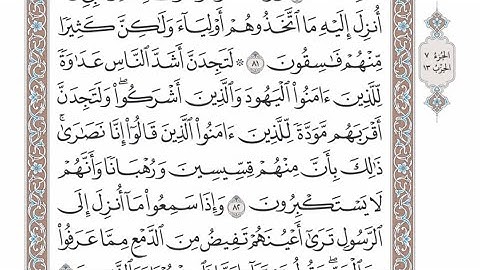 أُنزِلَ إِلَيْهِ مَا ٱتَّخَذُوهُمْ أَوْلِيَآءَ وَلَٰكِنَّ كَثِيرًا
مِّنْهُمْ فَٰسِقُونَ ٨١ ۞ لَتَجِدَنَّ أَشَدَّ ٱلنَّاسِ عَدَٰوَةً
لِّلَّذِينَ ءَامَنُوا۟ ٱلْيَهُودَ وَٱلَّذِينَ أَشْرَكُوا۟ ۖ وَلَتَجِدَنَّ
أَقْرَبَهُم مَّوَدَّةً لِّلَّذِينَ ءَامَنُوا۟ ٱلَّذِينَ قَالُوٓا۟ إِنَّا نَصَٰرَىٰ ۚ
ذَٰلِكَ بِأَنَّ مِنْهُمْ قِسِّيسِينَ وَرُهْبَانًا وَأَنَّهُمْ
لَا يَسْتَكْبِرُونَ ٨٢ وَإِذَا سَمِعُوا۟ مَآ أُنزِلَ إِلَى
ٱلرَّسُولِ تَرَىٰٓ أَعْيُنَهُمْ تَفِيضُ مِنَ ٱلدَّمْعِ مِمَّا عَرَفُوا۟
الجزء ٧
الحزب ١٣